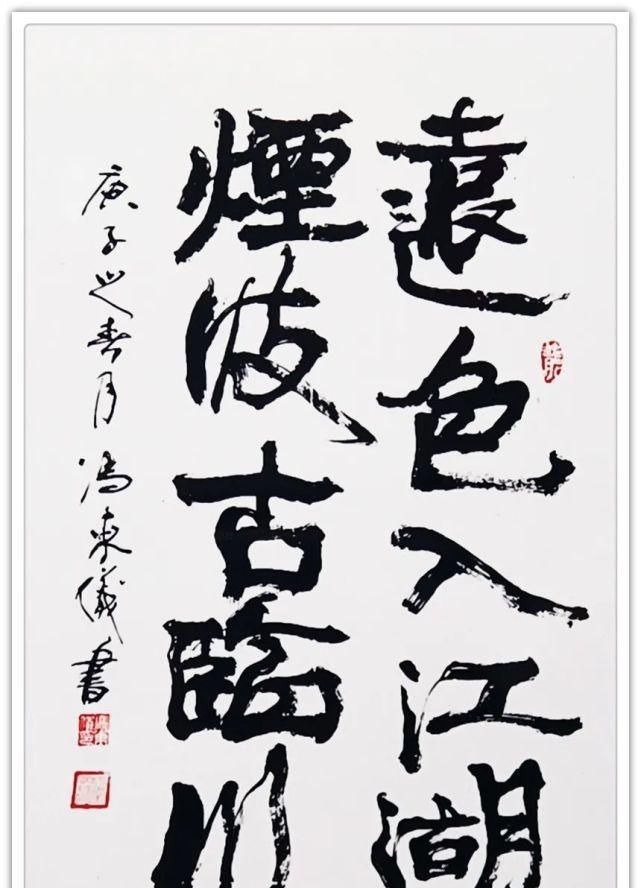 遠色入江湖
煙波古臨川
庚子之春月 馮來儀書